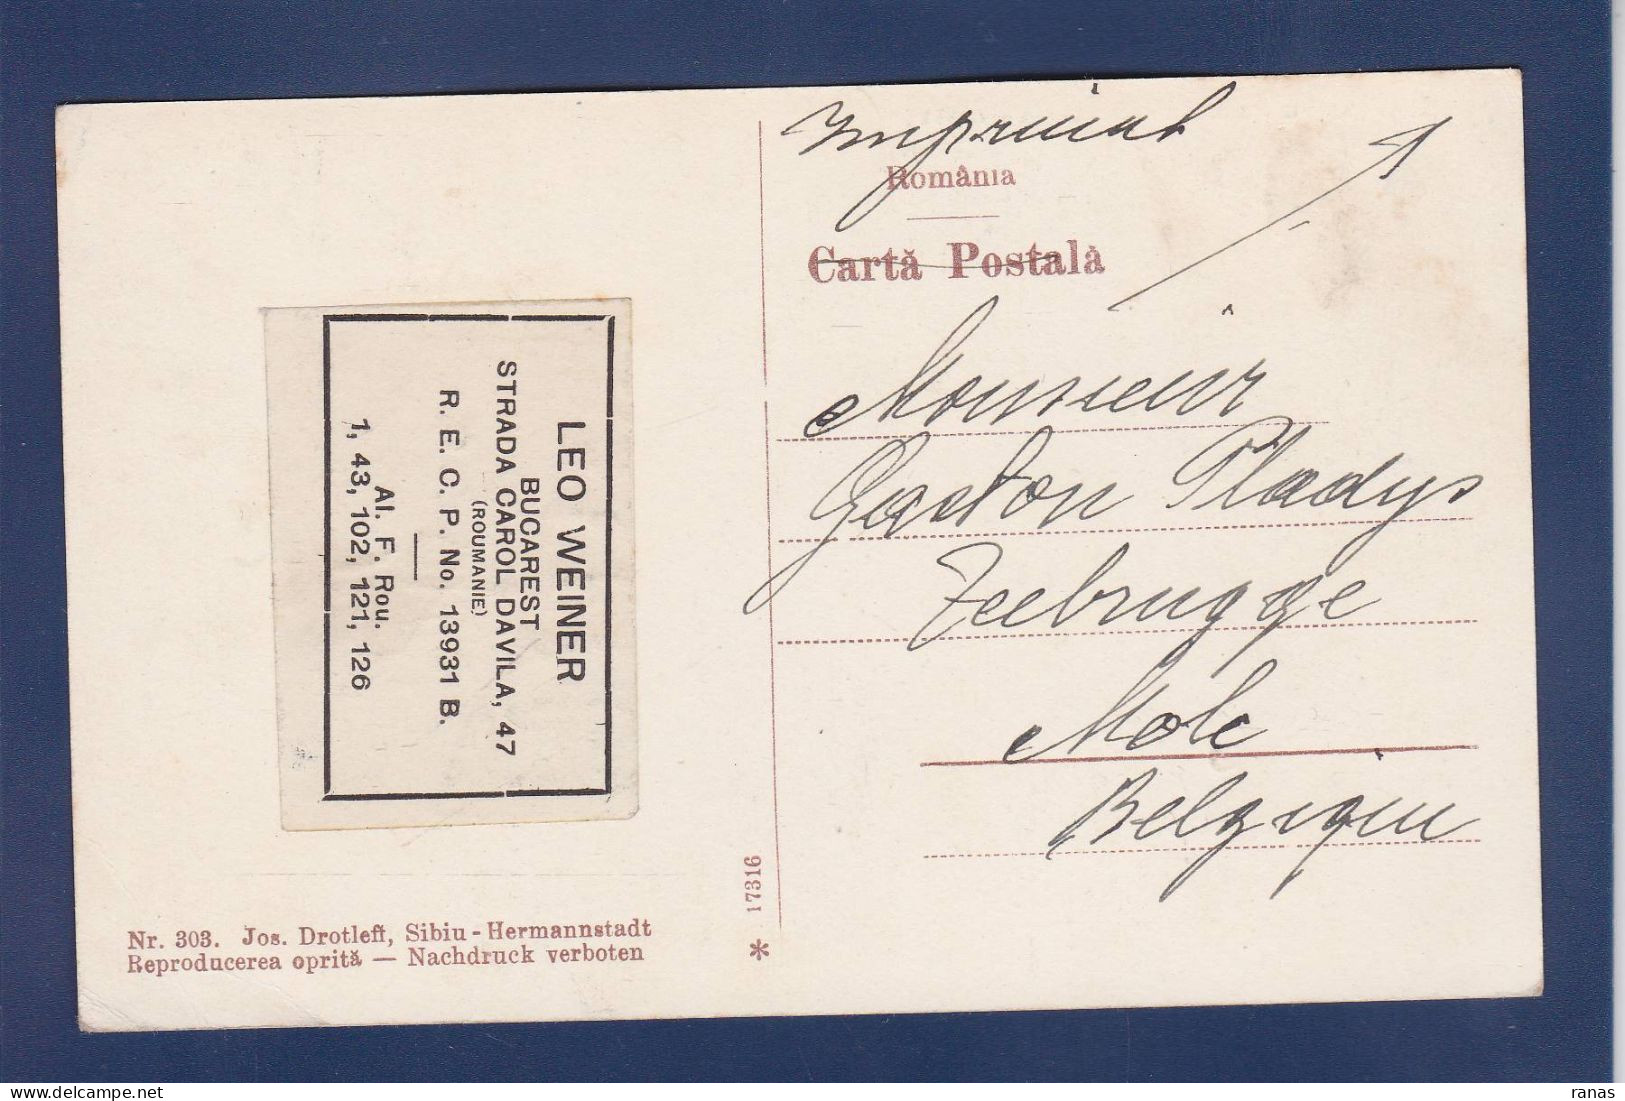 Imprimat
România
Cartă Postală
Monsieur
Gaston Pladys
Zeebrugge
Mole
Belgique
LEO WEINER
BUCAREST
STRADA CAROL DAVILA, 47
(ROUMANIE)
R. E. C. P. No. 13931 B.
Al. F. Rou.
1, 43, 102, 121, 126
Nr. 303. Jos. Drotleff, Sibiu - Hermannstadt
Reproducerea oprită — Nachdruck verboten
* 17316
ranas